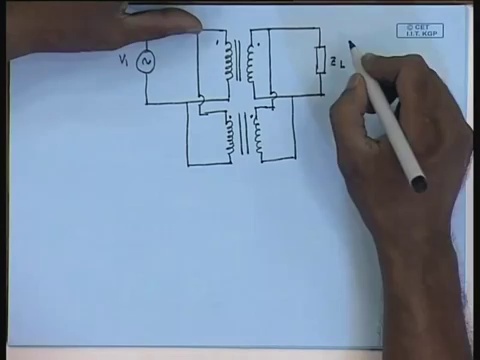 © CET
I.I.T. KGP
V1
ZL